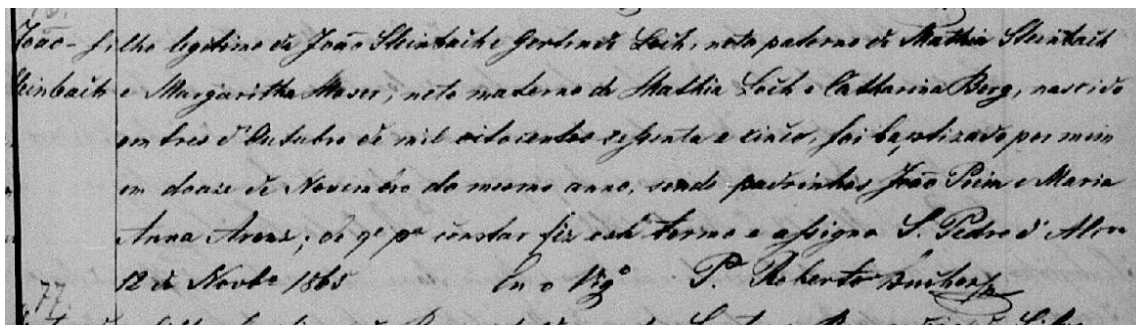 João - filho legitimo de João Steinbach e Gertrudes Loch, neto paterno de Mathia Steinbach
Steinbach e Margaritha Moser; neto materno de Mathia Loch e Catharina Berg, nascido
em tres d'Outubro de mil oitocentos sessenta e cinco, foi baptizado por mim
em doaze de Novembro do mesmo anno, sendo padrinhos João Preim e Maria
Anna Arens; de qe pa constar fiz este termo e assigno S. Pedro d'Alcra
12 de Novbo 1865 Eu o Vigo Pe Roberto Bucher
77.